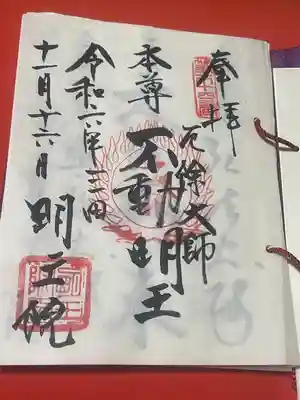 奉拝
厄除大師
本尊 不動明王
令和六年
十一月十六日
明王院